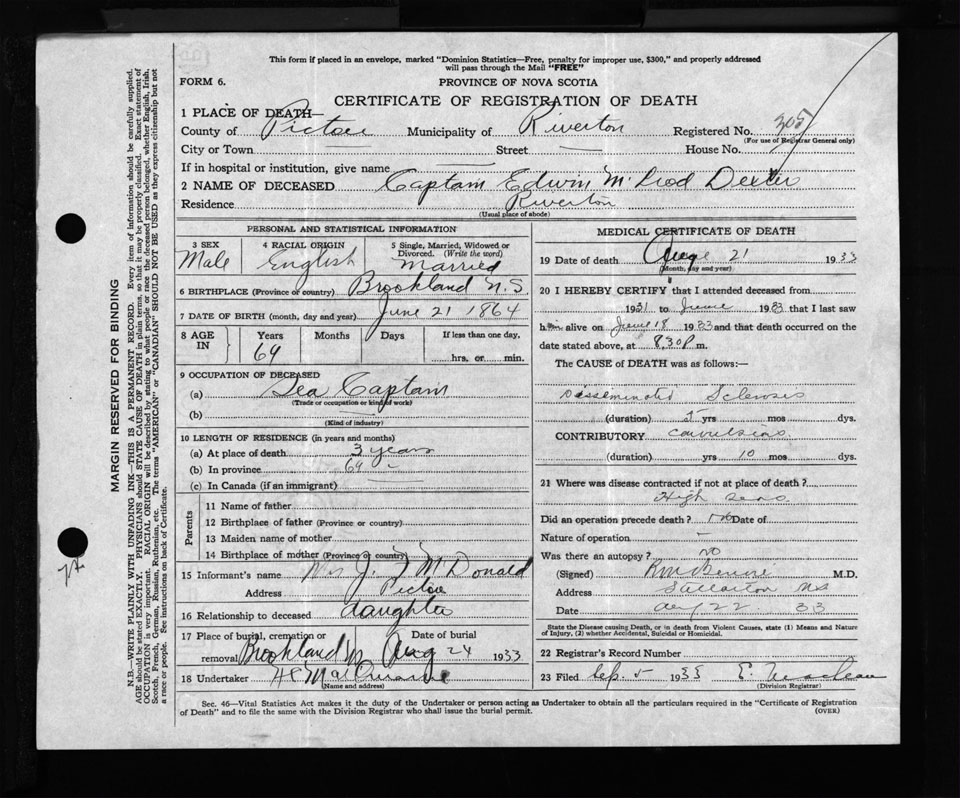 This form if placed in an envelope, marked "Dominion Statistics—Free, penalty for improper use, $300," and properly addressed
will pass through the Mail "FREE"
FORM 6.
PROVINCE OF NOVA SCOTIA
CERTIFICATE OF REGISTRATION OF DEATH
1 PLACE OF DEATH—
County of Pictou Municipality of Riverton Registered No. 305
(For use of Registrar General only)
City or Town Street House No.
If in hospital or institution, give name
2 NAME OF DECEASED Captain Edwin McLeod Dexter
Residence Riverton
(Usual place of abode)
PERSONAL AND STATISTICAL INFORMATION
3 SEX Male
4 RACIAL ORIGIN English
5 Single, Married, Widowed or Divorced. (Write the word) Married
6 BIRTHPLACE (Province or country) Brookland N.S.
7 DATE OF BIRTH (month, day and year) June 21 1864
8 AGE IN Years 69 Months Days If less than one day, hrs. or min.
9 OCCUPATION OF DECEASED
(a) Sea Captain
(Trade or occupation or kind of work)
(b)
(Kind of industry)
10 LENGTH OF RESIDENCE (in years and months)
(a) At place of death 3 years
(b) In province 69
(c) In Canada (if an immigrant)
Parents
11 Name of father
12 Birthplace of father (Province or country)
13 Maiden name of mother
14 Birthplace of mother (Province or country)
15 Informant's name Mrs J. McDonald
Address Pictou
16 Relationship to deceased daughter
17 Place of burial, cremation or removal Brookland Date of burial Aug 24 1933
18 Undertaker
(Name and address)
MEDICAL CERTIFICATE OF DEATH
19 Date of death Aug 21 1933
(Month, day and year)
20 I HEREBY CERTIFY that I attended deceased from
1931 to June 1933 that I last saw
him alive on June 18 1933 and that death occurred on the
date stated above, at 8 30 P m.
The CAUSE of DEATH was as follows:—
Disseminated Sclerosis
(duration) 5 yrs mos dys.
CONTRIBUTORY convulsions
(duration) yrs 10 mos dys.
21 Where was disease contracted if not at place of death?
High Seas
Did an operation precede death? no Date of
Nature of operation
Was there an autopsy? no
(Signed) M.D.
Address Stellarton NS
Date Aug 22 33
State the Disease causing Death, or in death from Violent Causes, state (1) Means and Nature
of Injury, (2) whether Accidental, Suicidal or Homicidal.
22 Registrar's Record Number
23 Filed Sep. 5 1933 E. Maclean
(Division Registrar)
Sec. 46—Vital Statistics Act makes it the duty of the Undertaker or person acting as Undertaker to obtain all the particulars required in the "Certificate of Registration
of Death" and to file the same with the Division Registrar who shall issue the burial permit.
(OVER)
MARGIN RESERVED FOR BINDING
N.B.—WRITE PLAINLY WITH UNFADING INK—THIS IS A PERMANENT RECORD. Every item of information should be carefully supplied.
AGE should be stated EXACTLY. PHYSICIANS should STATE CAUSE OF DEATH in plain terms, so that it may be properly classified. Exact statement of
OCCUPATION is very important. RACIAL ORIGIN will be described by stating to what people or race the deceased person belonged, whether English, Irish,
Scotch, French, German, Russian, Ruthenian, etc. The terms "AMERICAN" or "CANADIAN" SHOULD NOT BE USED as they express citizenship but not
a race or people. See instructions on back of Certificate.